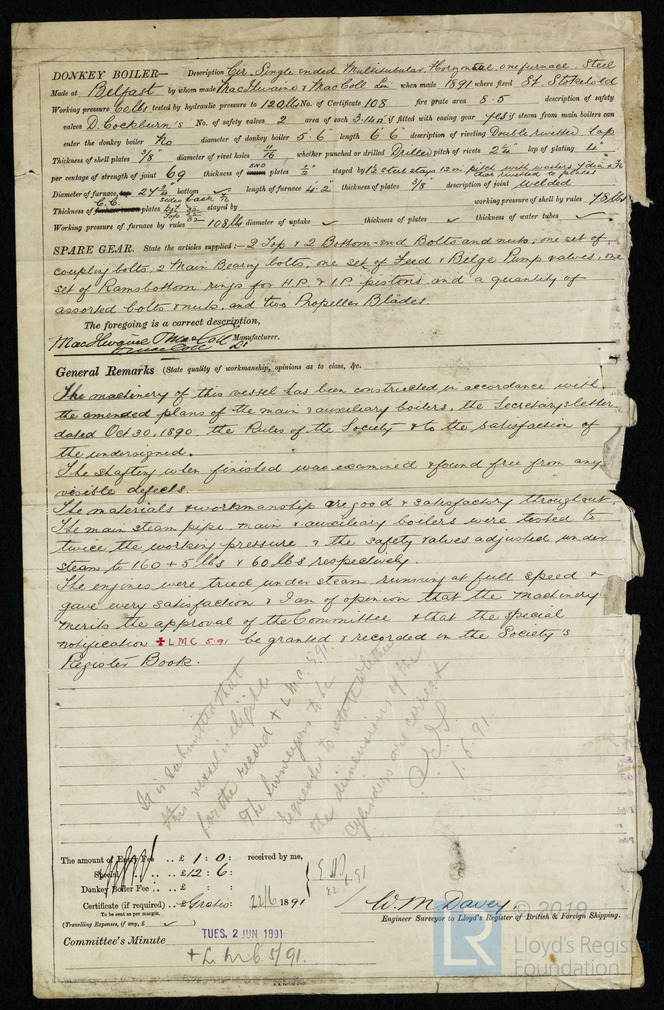 DONKEY BOILER— Description Cir. Single ended Multitubular Horizontal one furnace. Steel
Made at Belfast by whom made MacIlwaine & MacColl Lim when made 1891 where fixed St. Stokehold
Working pressure 60 lbs tested by hydraulic pressure to 120 lbs No. of Certificate 108 fire grate area 8.5 description of safety
valves D. Cockburn's No. of safety valves 2 area of each 3.14 if fitted with easing gear yes if steam from main boilers can
enter the donkey boiler No diameter of donkey boiler 5'.6" length 6'.6" description of riveting Double riveted Lap
Thickness of shell plates 3/8" diameter of rivet holes 11/16" whether punched or drilled Drilled pitch of rivets lap of plating
per centage of strength of joint 69 thickness of end plates 1/2" stayed by
that riveted to plates
Diameter of furnace, bottom length of furnace 4'.2 thickness of plates 3/8 description of joint welded
Thickness of C.C. plates stayed by working pressure of shell by rules 78 lbs
Working pressure of furnace by rules 108 lbs diameter of uptake ✓ thickness of plates ✓ thickness of water tubes ✓
SPARE GEAR. State the articles supplied:— 2 Top & 2 Bottom-end Bolts and nuts, one set of
coupling bolts, 2 Main Bearing bolts, one set of Feed & Belge Pump valves, one
set of Ramsbottom rings for H.P. & I.P. pistons and a quantity of
assorted bolts & nuts. and two Propeller Blades.
The foregoing is a correct description,
MacIlwaine & MacColl Ld Manufacturer.
General Remarks (State quality of workmanship, opinions as to class, &c.
The machinery of this vessel has been constructed in accordance with
the amended plans of the main & auxiliary boilers, the Secretary's letter
dated Oct 30. 1890, the Rules of the Society & to the satisfaction of
the undersigned.
The shafting when finished was examined & found free from any
visible defects.
The materials & workmanship are good & satisfactory throughout.
The main steam pipe, main & auxiliary boilers were tested to
twice the working pressure & the safety valves adjusted under
steam to 160 + 5 lbs & 60 lbs respectively.
The engines were tried under steam running at full speed &
gave every satisfaction & I am of openion that the machinery
merits the approval of the Committee & that the special
notification ✠ LMC 5.91 be granted & recorded in the Society's
Register Book.
It is submitted that
this vessel is eligible
for the record + LMC 5.91.
The Surveyors to be
requested to state whether
the dimensions of the
cylinders are correct
1.6.91
The amount of Entry Fee .. £ 1 : 0 : received by me,
Special .. £ 12 : 6 :
Donkey Boiler Fee .. £ : :
Certificate (if required) .. £ Gratis : 22/6 1891
To be sent as per margin.
(Travelling Expenses, if any, £ ✓ )
W. M. Davey.
Engineer Surveyor to Lloyd's Register of British & Foreign Shipping.
Committee's Minute TUES. 2 JUN 1891
+ L.M.C. 5/91.
© 2019
LR
Lloyd's Register
Foundation